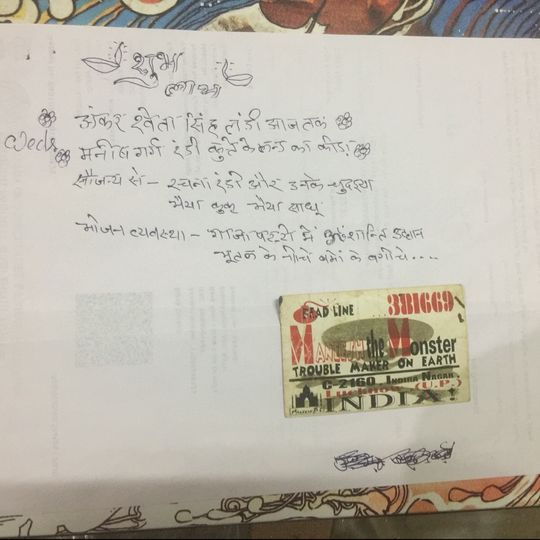 शुभ
लाभ
अंकर श्वेता सिंह लंडी आजतक
Weds
मनीष गर्ग रंडी कुत्ते के लन्ड का कीड़ा
सौजन्य से - रचना रंडी और उनके
भैया कुक भैया साधू
भोजन व्यवस्था - गाजा पट्टी में शान्ति उद्यान
भूतल के नीचे बमों के बगीचे....
DEAD LINE 3B1669
MANEESH the Monster
TROUBLE MAKER ON EARTH
C-2160 INDIRA NAGAR,
LUCKNOW (U.P.)
INDIA!